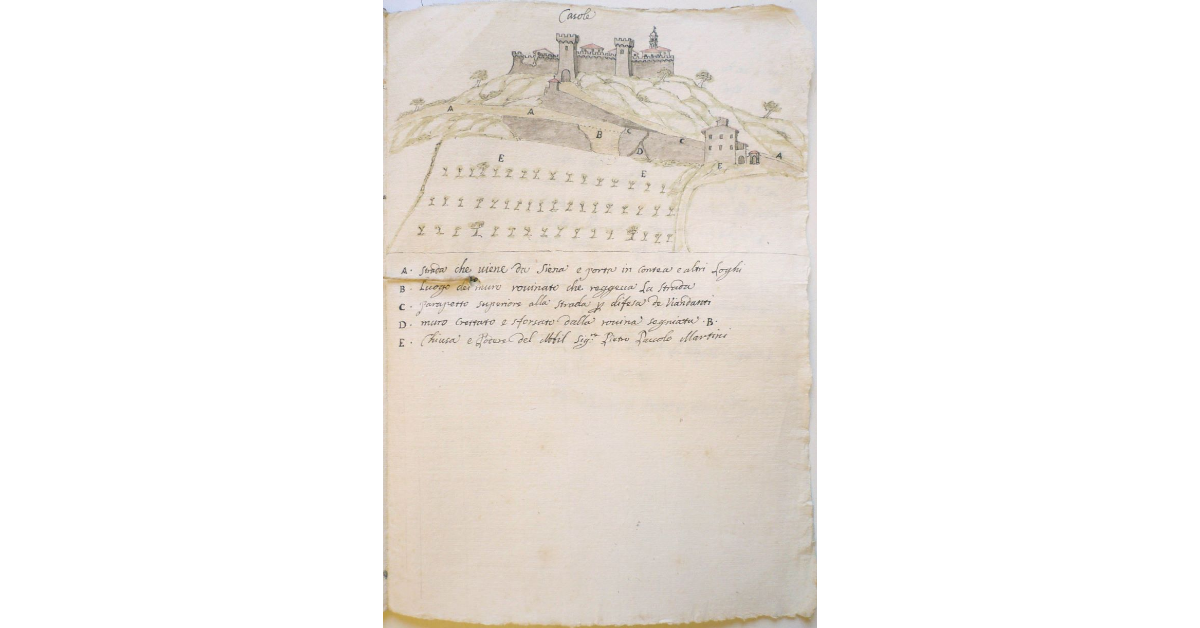 Casole
A
A
B
C
C
D
A
E
E
E
A. Strada che viene da Siena e porta in Contea e altri Loghi
B. Luogo del muro rovinato che reggeva La Strada
C. parapetto superiore alla strada p difesa de Viandanti
D. muro Crettato e sforzato dalla rovina segniata .B.
E. Chiusa e Podere del Nobil Sigr. Pietro Martini